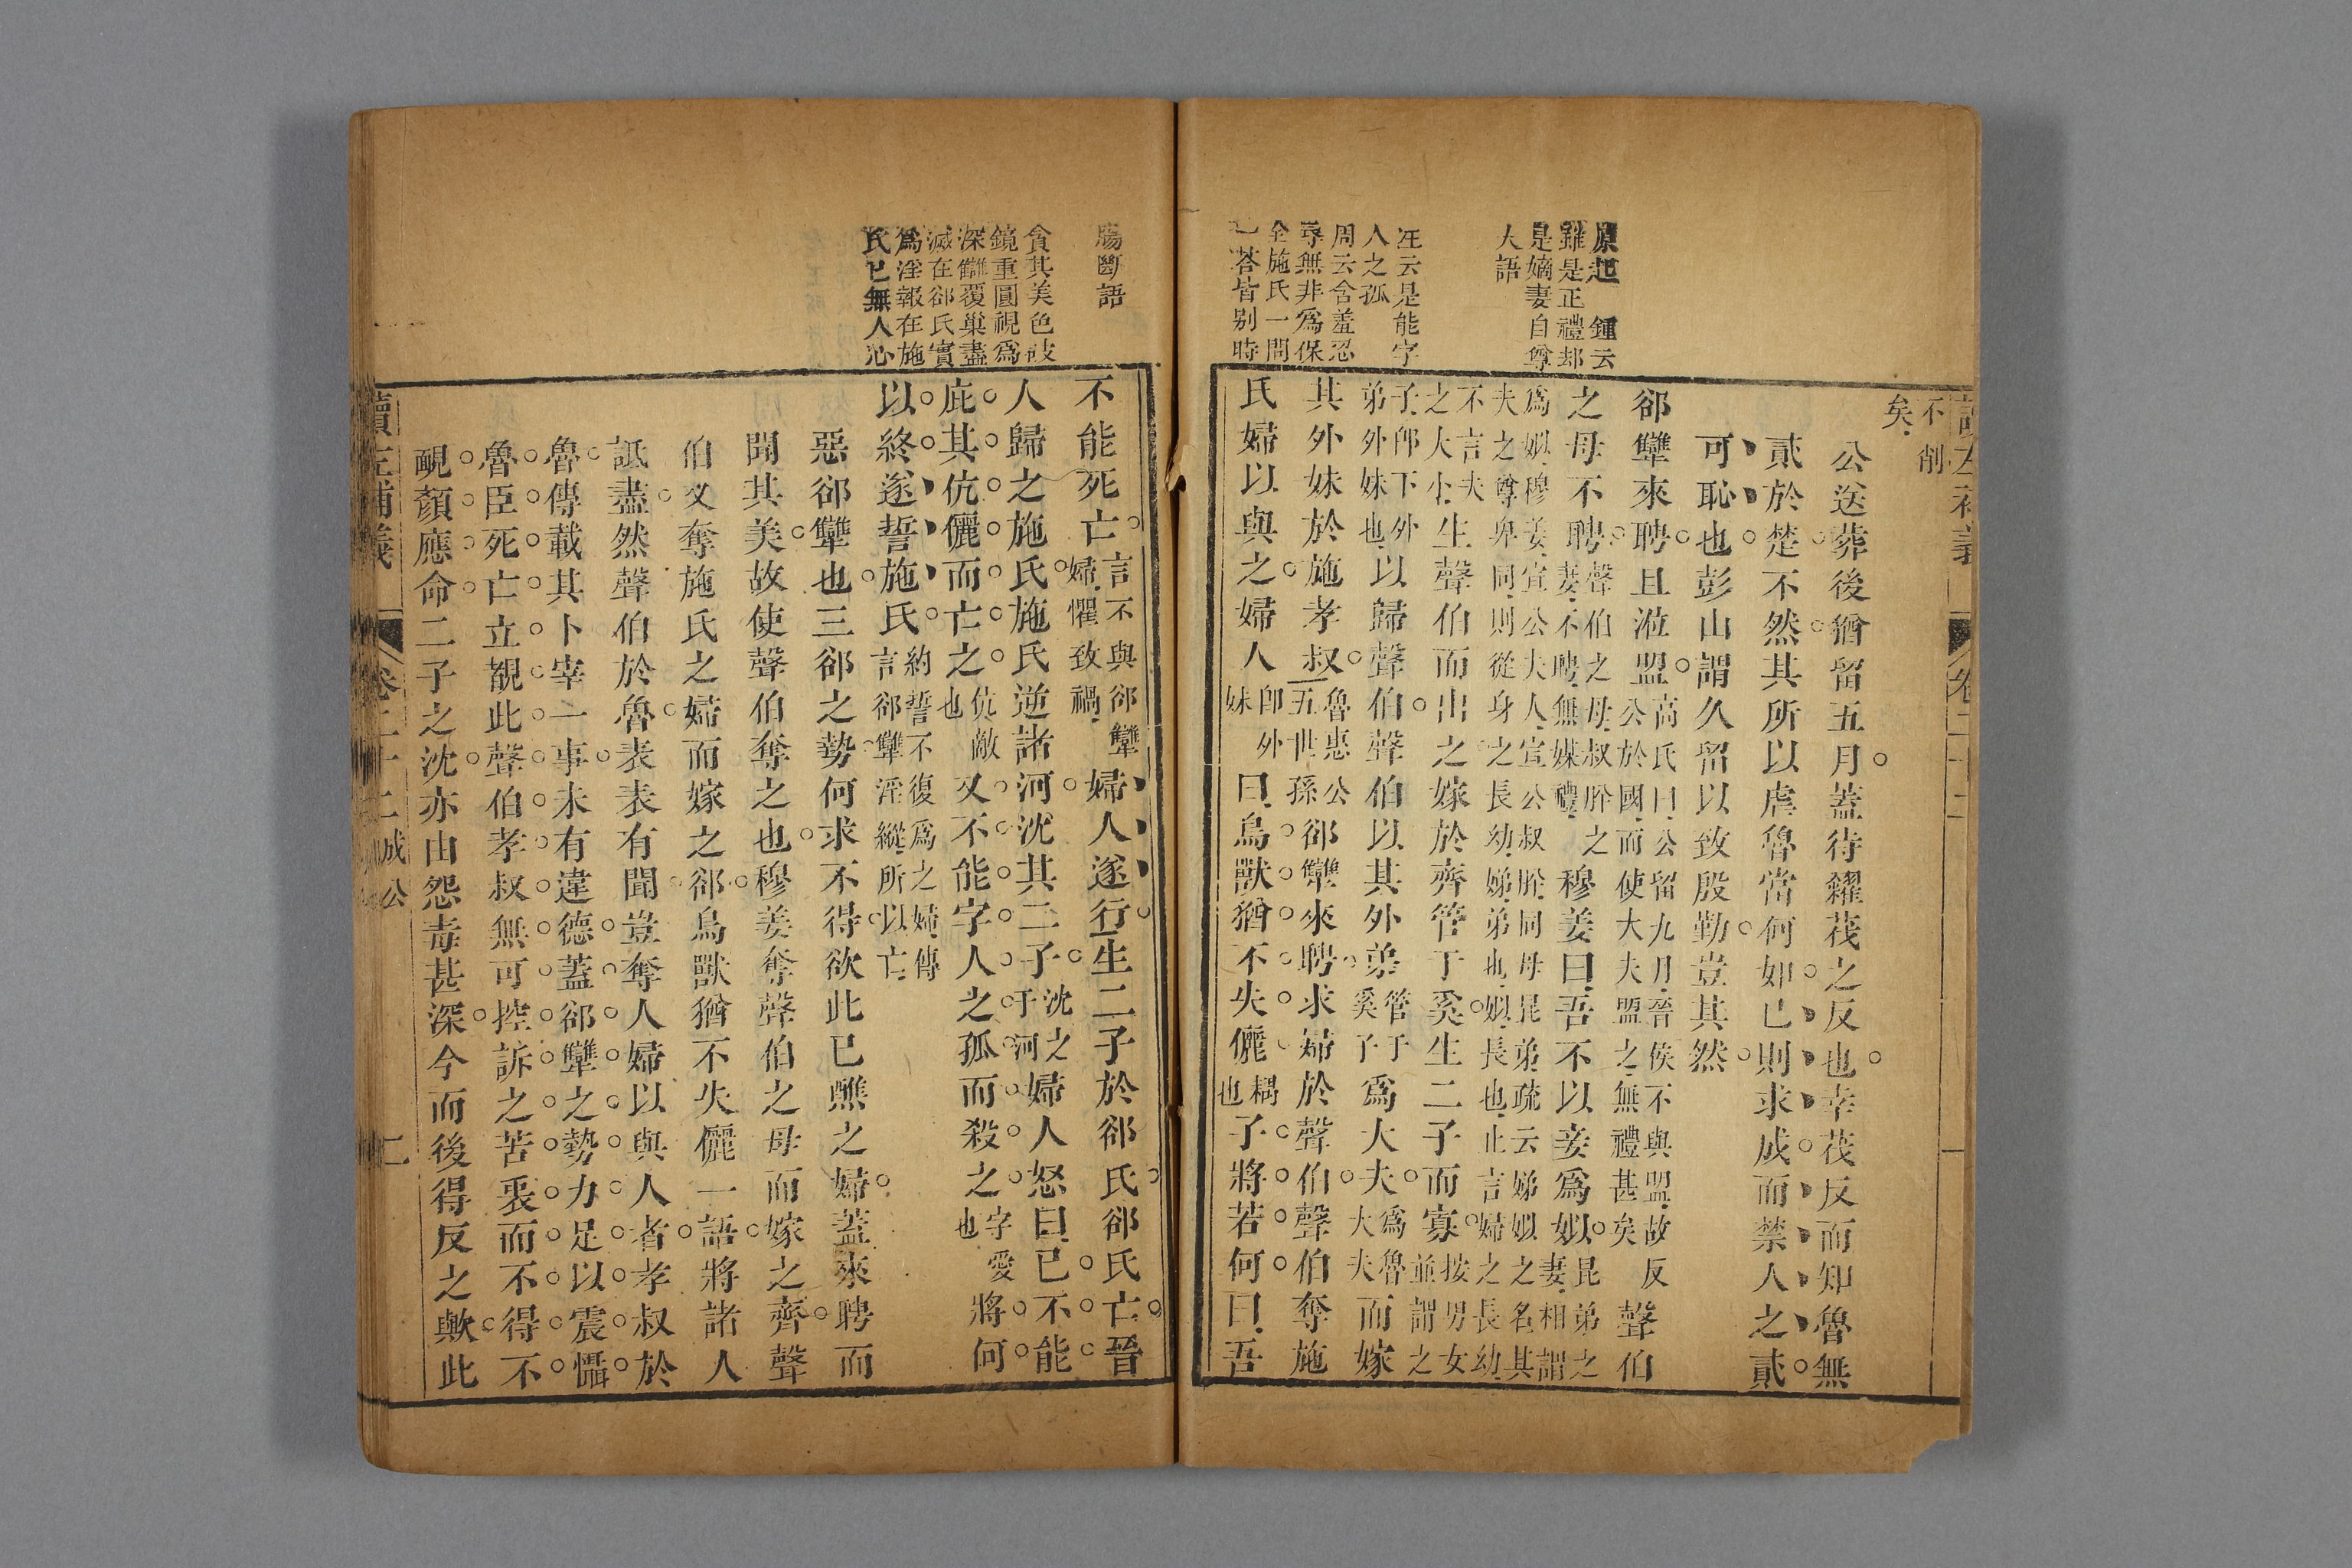 讀左補義
卷二十二
不削
矣
公送葬後猶留五月蓋待糴茷之反也幸茷反而知魯無
貳於楚不然其所以虐魯當何如已則求成而禁人之貳
可恥也彭山謂久留以致殷勤豈其然
郤犨來聘且涖盟高氏曰公留九月晉侯不與盟故反公於國而使大夫盟之無禮甚矣聲伯
之母不聘聲伯之母叔肸之妻不聘無媒禮穆姜曰吾不以妾爲姒昆弟之妻相謂
爲姒穆姜宣公夫人宣公叔肸同母昆弟疏云娣姒之名其
夫之尊卑同則從身之長幼娣弟也姒長也止言婦之長幼
不言夫之大小生聲伯而出之嫁於齊管于奚生二子而寡按男女並謂之
子卽下外弟外妹也以歸聲伯聲伯以其外弟管于奚子爲大夫爲魯大夫而嫁
其外妹於施孝叔魯惠公五世孫郤犨來聘求婦於聲伯聲伯奪施
氏婦以與之婦人卽外妹曰鳥獸猶不失儷耦也子將若何曰吾
原起　鍾云
雖是正禮却
是嫡妻自尊
大語
汪云是能字
人之孤
周云含羞忍
辱無非爲保
全施氏一問
一答皆别時
腸斷語
貪其美色破
鏡重圓視爲
深讎覆巢盡
滅在郤氏實
爲淫報在施
氏已無人心
不能死亡言不與郤犨婦懼致禍婦人遂行生二子於郤氏郤氏亡晉
人歸之施氏施氏逆諸河沈其二子沈之于河婦人怒曰已不能
庇其伉儷而亡之伉敵也又不能字人之孤而殺之字愛也將何
以終遂誓施氏約誓不復爲之婦傳言郤犨淫縱所以亡
惡郤犨也三郤之勢何求不得欲此已醮之婦蓋來聘而
聞其美故使聲伯奪之也穆姜奪聲伯之母而嫁之齊聲
伯又奪施氏之婦而嫁之郤鳥獸猶不失儷一語將諸人
詆盡然聲伯於魯表表有聞豈奪人婦以與人者孝叔於
魯傳載其卜宰一事未有違德蓋郤犨之勢力足以震懾
魯臣死亡立覩此聲伯孝叔無可控訴之苦衷而不得不
靦顏應命二子之沈亦由怨毒甚深今而後得反之歟此
讀左補義
卷二十二　成公
二